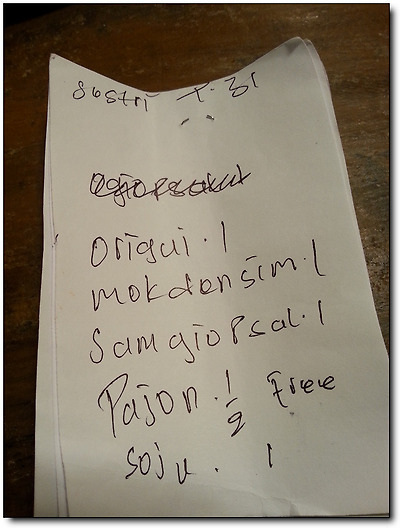 Sustri T. 31
Origui. 1
mokdensim. 1
Samgiopsal. 1
Pajon. 1/2 Free
Soju. 1